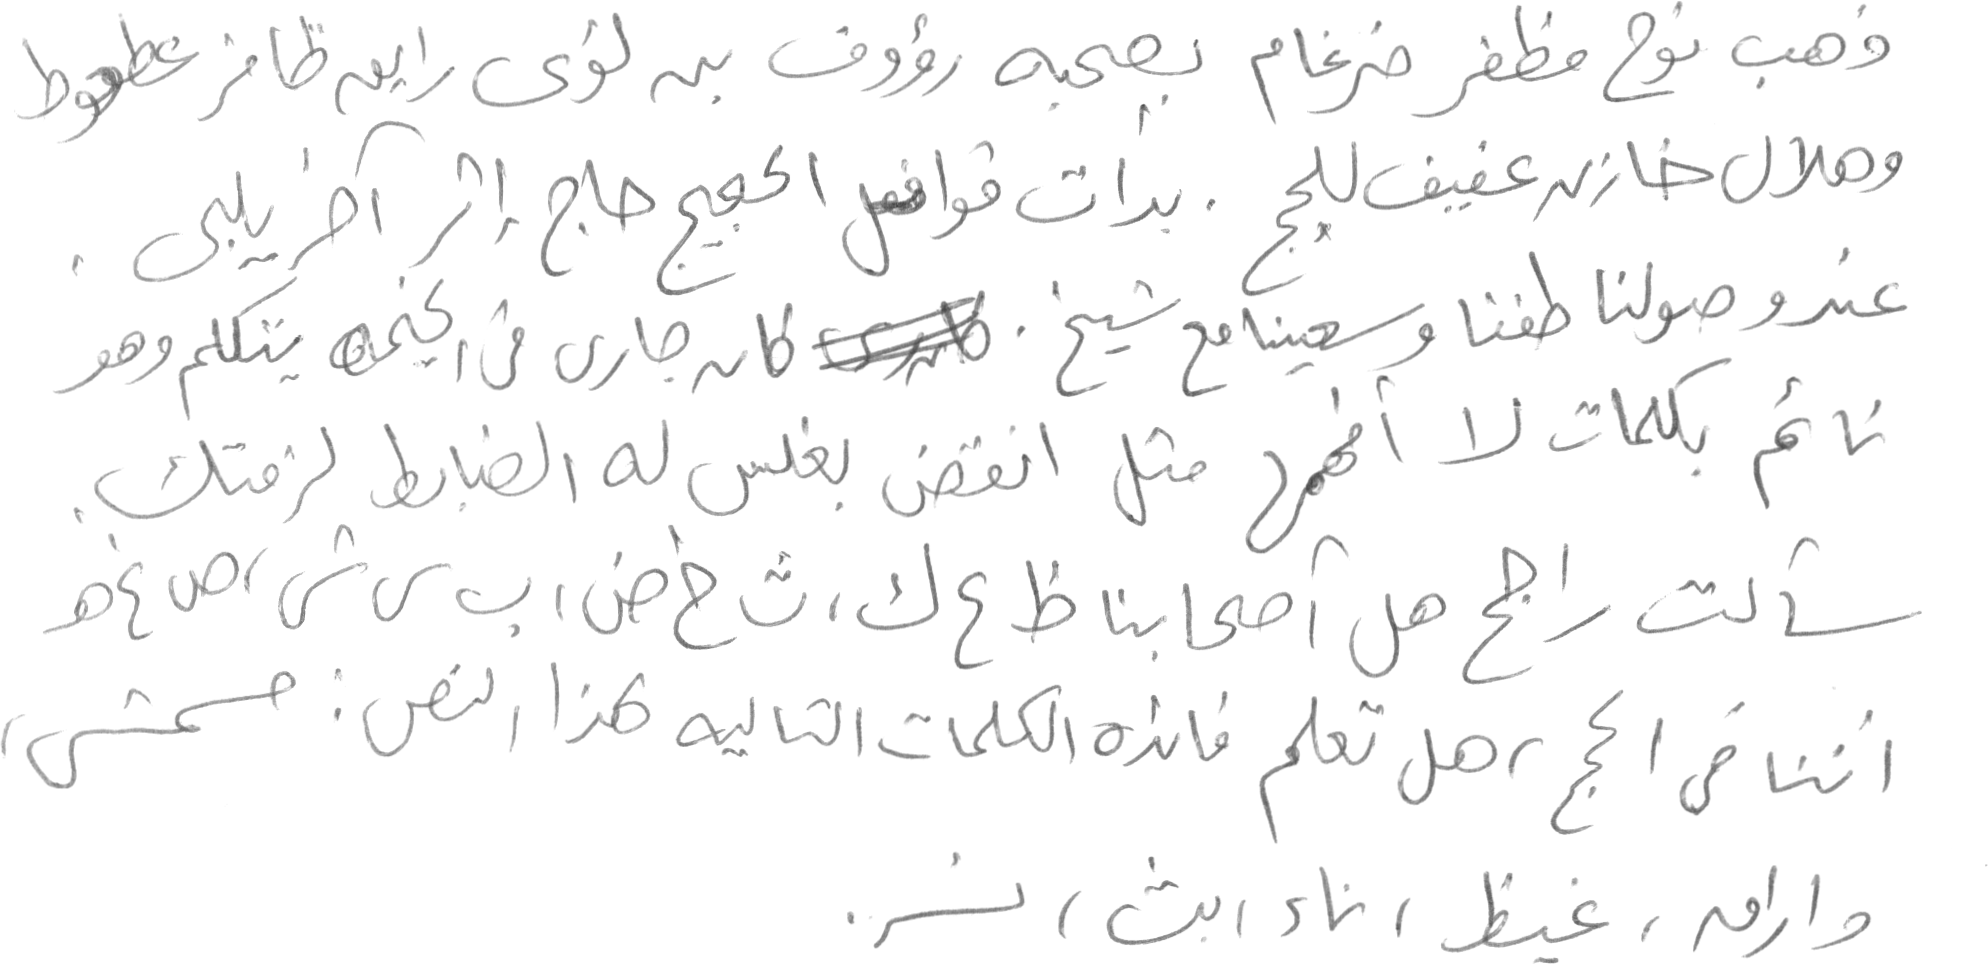 ذهب نوح مظفر ضرغام بصحبه رؤوف بن لؤى رايق ظافر عطعوط
وهلال خازن عفيف للحج . بدأت قوافل الحجيج حاج إثر آخر يلبى .
عند وصولنا طفنا وسعينا مع شيخ . كان جارى فى الخيمه يتكلم وهو
نائم بكلمات لا أفهمها مثل انقض بغلس له الضابط لزمتك .
سألت راجح هل أصحابنا ظ ع ك ، ث خ ض ، ب ى ش ، ص غ ه
اثننا فى الحج ، هل تعلم فائده الكلمات التاليه لهذا النص :
دارات ، غيظ ، ناء ، بث ، نسر .